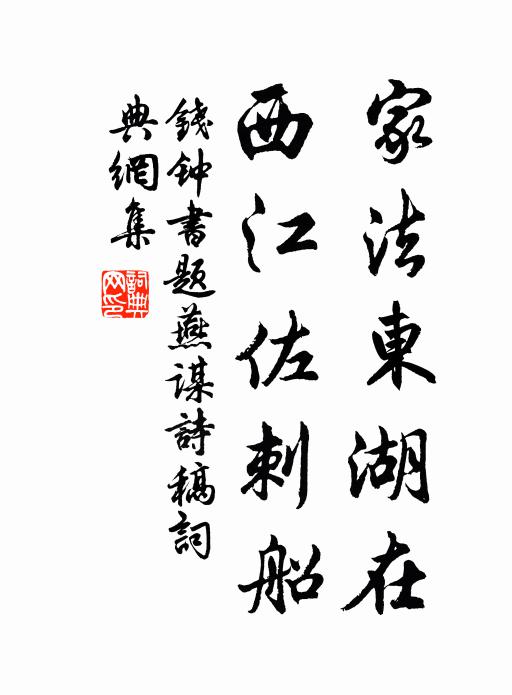 家法東湖在
西江佐刺船
錢钟書题燕谋詩稿詞
典網集
詞典网印